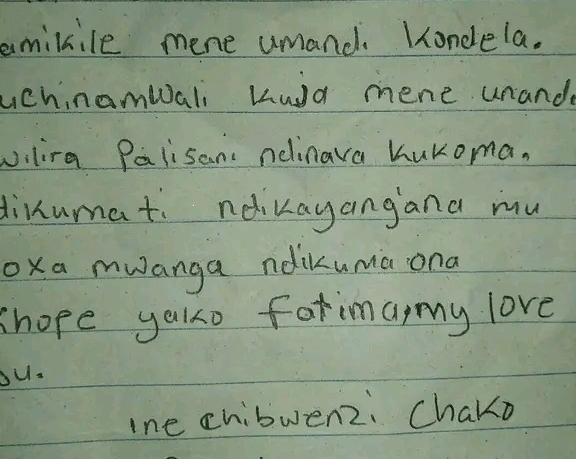 amikile mene umandi kondela.
uchinamwali kuja mene unand
wilira Palisani ndinava kukoma.
dikumati ndikayangána mu
oxa mwanga ndikuma ona
khope yako fatima, my love
ou.
ine chibwenzi chako